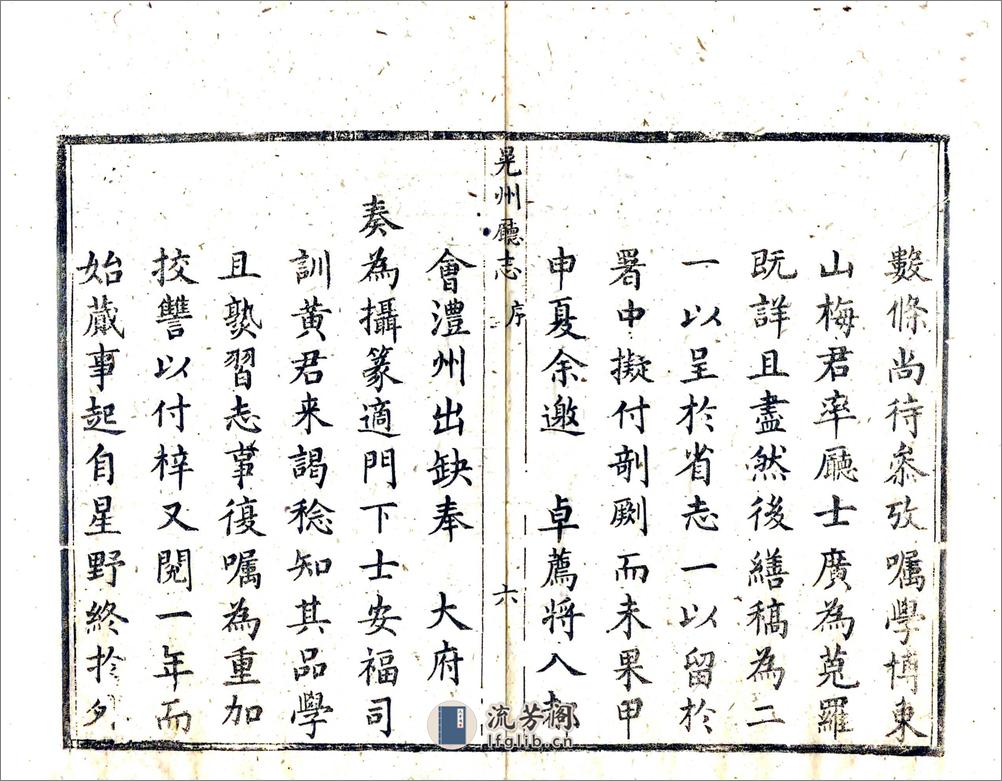 數條尚待叅攷囑學博東
山梅君率廳士廣為蒐羅
既詳且盡然後繕稿為二
一以呈於省志一以留於
署中擬付剞劂而未果甲
申夏余邀　卓薦將入都
晃州廳志　序　六
會澧州出缺奉　大府
奏為攝篆適門下士安福司
訓黃君来謁稔知其品學
且熟習志事復囑為重加
挍讐以付梓又閱一年而
始蕆事起自星野終扵外
流芳閣
lfglib.cn